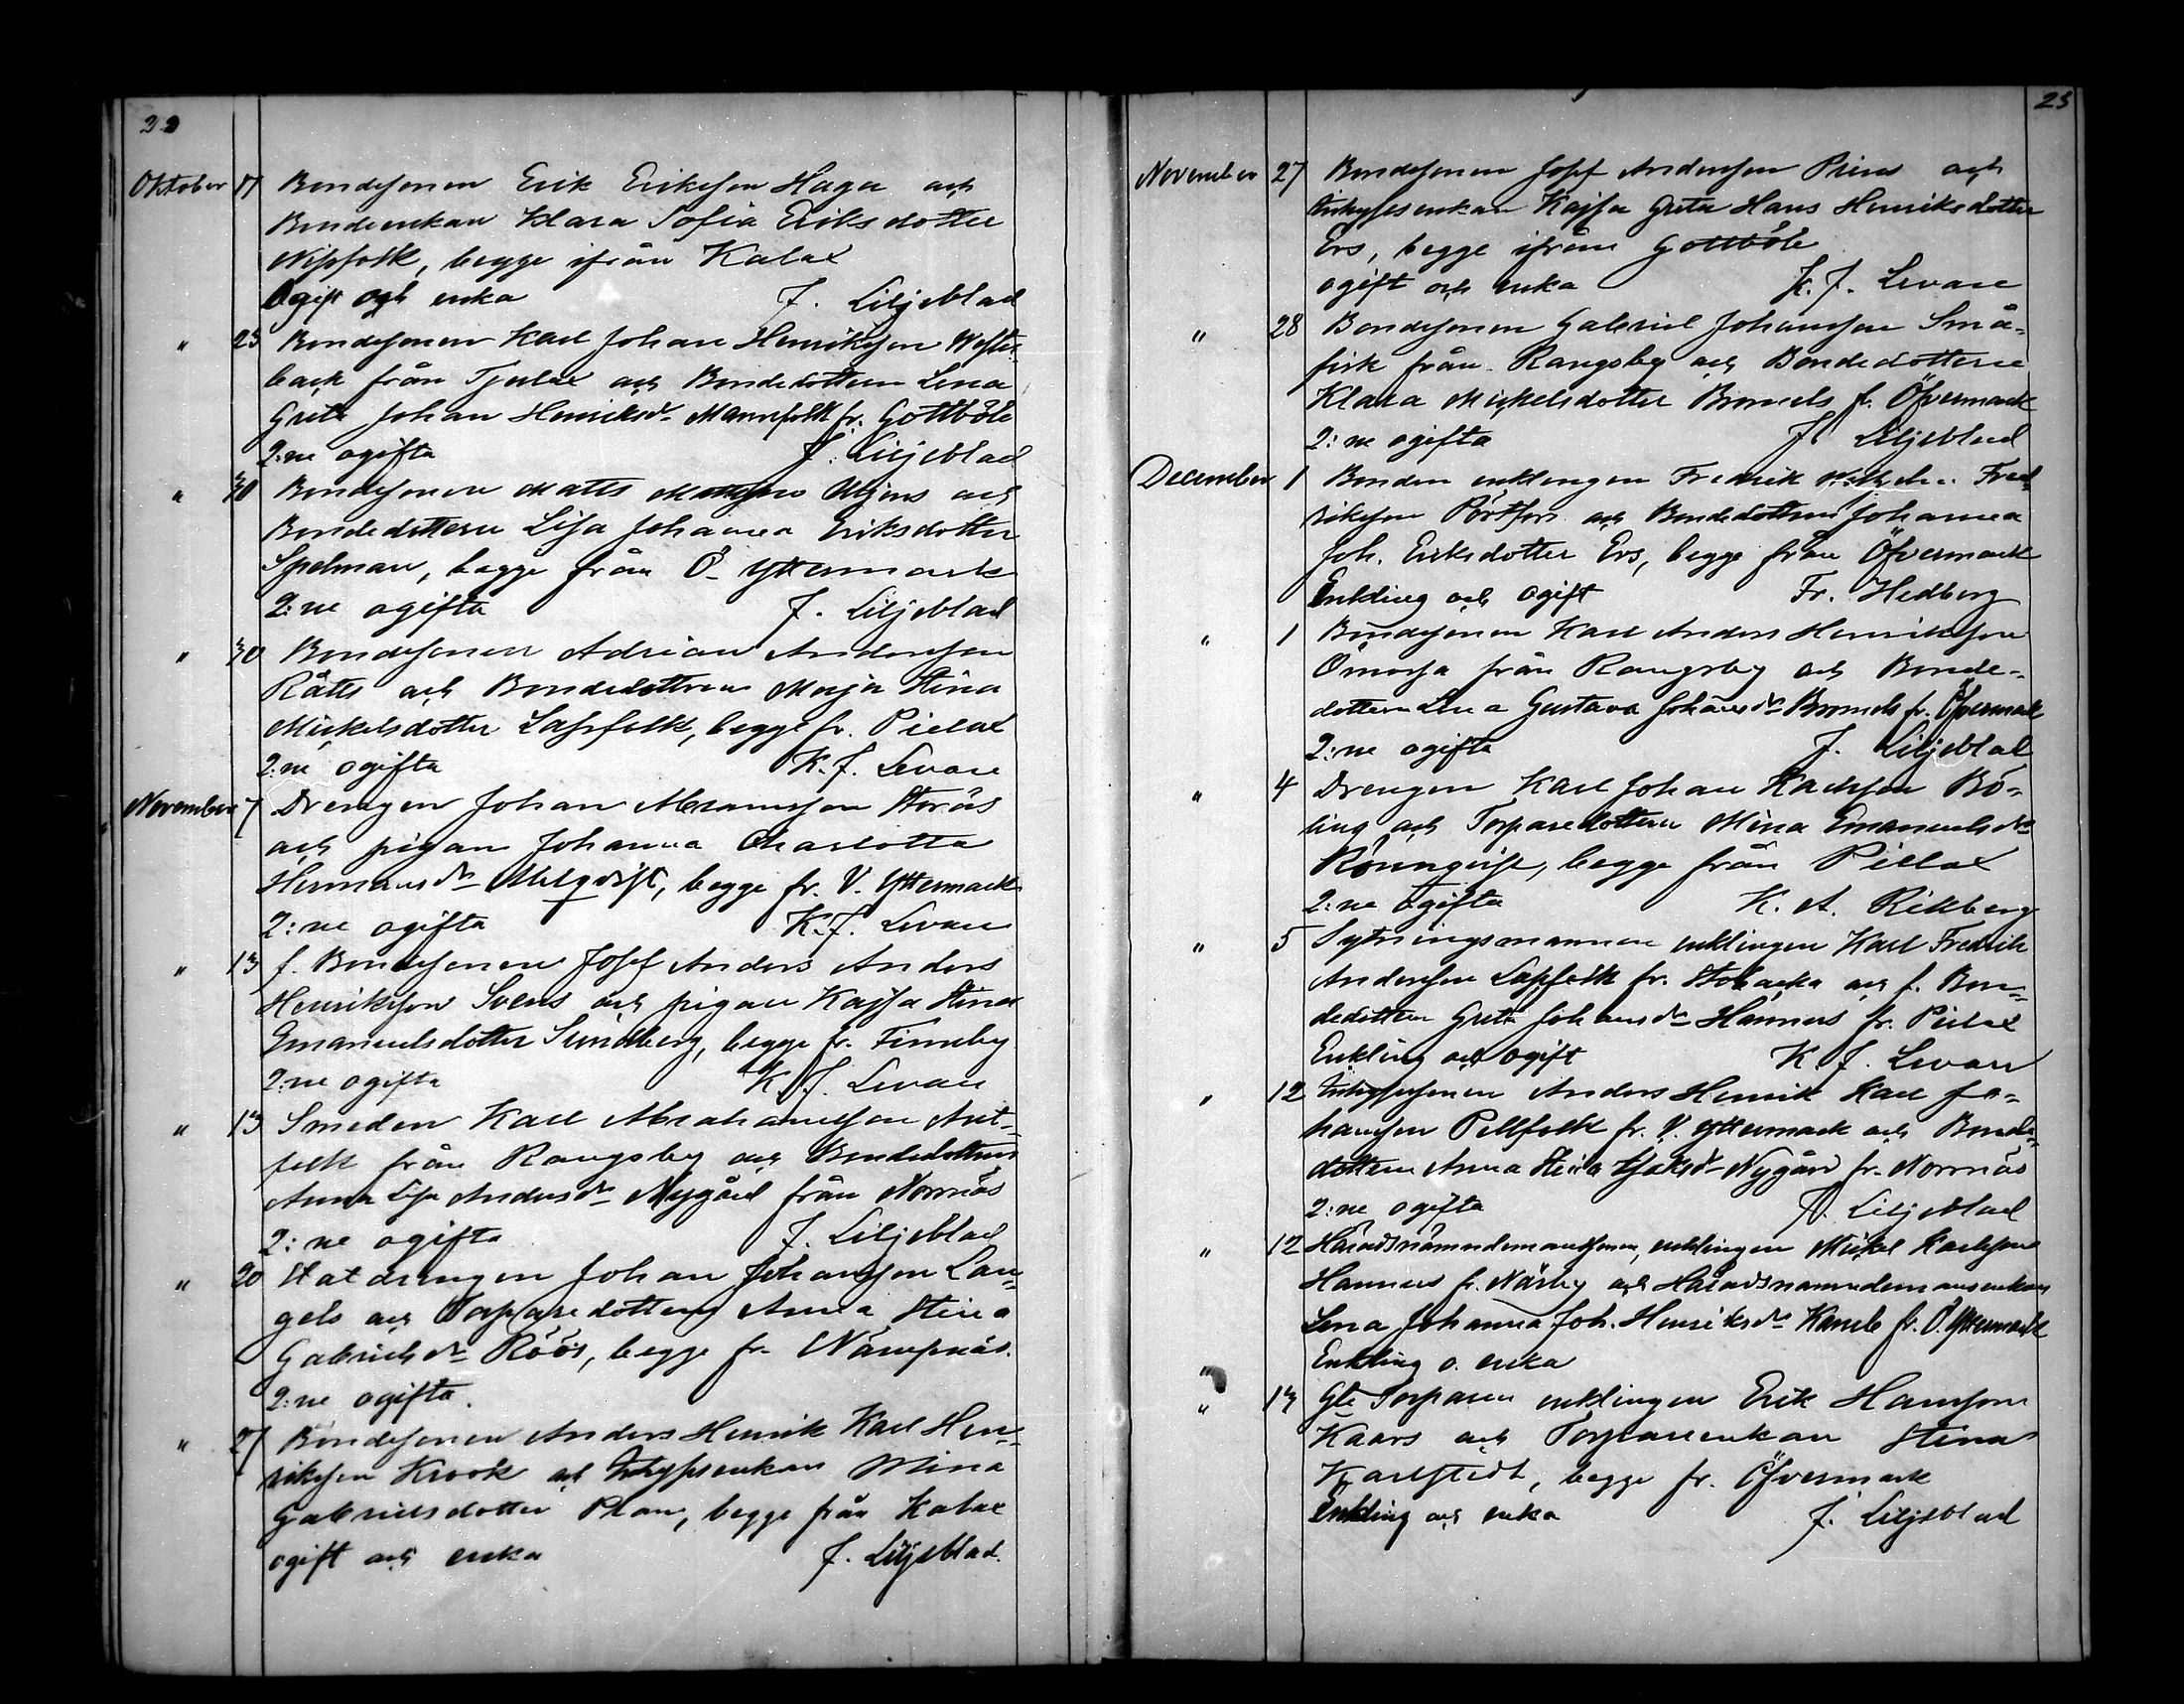 22
Oktober 17 Bondesonen Erik Eriksson Haga och
Bondeenkan Klara Sofia Eriksdotter
Nissfolk, begge ifrån Kalax
Ogift och enka J. Liljeblad
" 23 Bondesonen Karl Johan Henriksson Wester-
back från Tjerlax och Bondedottern Lena
Greta Johan Henriksdr Mannfolk fr. Gottböle
2:ne ogifta J. Liljeblad
" 30 Bondesonen Matts Mattsson Utjens och
Bondedottern Lisa Johanna Eriksdotter
Spelman, begge från Ö. Yttermark
2:ne ogifta J. Liljeblad
" 30 Bondesonen Adrian Andersson
Rätts och Bondedottren Maja Stina
Mickelsdotter Lassfolk, begge fr. Pielax
2:ne ogifta K. J. Levan
November 7 Drengen Johan Abramsson Storås
och pigan Johanna Charlotta
Hermansdr Ahlqvist, begge fr. V. Yttermark
2:ne ogifta K. J. Levan
" 13 f. Bondesonen Josef Anders Anders
Henriksson Svens och pigan Kajsa Stina
Emanuelsdotter Sundberg, begge fr. Finnby
2:ne ogifta K. J. Levan
" 13 Smeden Karl Abrahamsson Ant-
folk från Rangsby och Bondedottren
Anna Lisa Andersdr Nygård från Norrnäs
2:ne ogifta J. Liljeblad
" 20 Statdrengen Johan Johansson Lan-
gels och Torparedottern Anna Stina
Gabrielsdr Röös, begge fr. Nämpnäs.
2:ne ogifta.
" 27 Bondesonen Anders Henrik Karl Hen-
riksson Krook och Inhysesenkan Mina
Gabrielsdotter Plan, begge från Kalax
ogift och enka J. Liljeblad.
23
November 27 Bondesonen Josef Andersson Prins och
Inhysesenkan Kajsa Greta Hans Henriksdotter
Ers, begge ifrån Gottböle
ogift och enka K. J. Levan
" 28 Bondesonen Gabriel Johansson Små-
fisk från Rangsby och Bondedottern
Klara Mickelsdotter Bromels fr. Öfvermark
2:ne ogifta J. Liljeblad
December 1 Bonden enklingen Fredrik Wilhelm Fred-
riksson Pörtfors och Bondedottren Johanna
Joh. Eriksdotter Ers, begge från Öfvermark
Enkling och ogift Fr. Hedberg
" 1 Bondesonen Karl Anders Henriksson
Ömossa från Rangsby och Bonde-
dottern Lena Gustava Johansdr Bromels fr. Öfvermark
2:ne ogifta J. Liljeblad
" 4 Drengen Karl Johan Karlsson Bö-
ling och Torparedottern Mina Emanuelsdr
Rönnqvist, begge från Pielax
2:ne ogifta K. A. Rikberg
" 5 Sytningsmannen enklingen Karl Fredrik
Andersson Lassfolk fr. Stobacka och f. Bon-
dedottern Greta Johansdr Hannus fr. Pielax
Enkling och ogift K. J. Levan
" 12 Inhysessonen Anders Henrik Karl Jo-
hansson Pellfolk fr. V. Yttermark och Bonde-
dottern Anna Stina Isaksdr Nygård fr. Norrnäs
2:ne ogifta J. Liljeblad
" 12 Häradsnämndemansonen, enklingen Mickel Karlsson
Hannus fr. Närby och Häradsnämndemansenkan
Lena Johanna Joh. Henriksdr Kamb fr. Ö. Yttermark
" Enkling o. enka
" 13 Gle Torparen enklingen Erik Hansson
Kaars och Torpareenkan Stina
Karlstedt, begge fr. Öfvermark
Enkling och enka J. Liljeblad